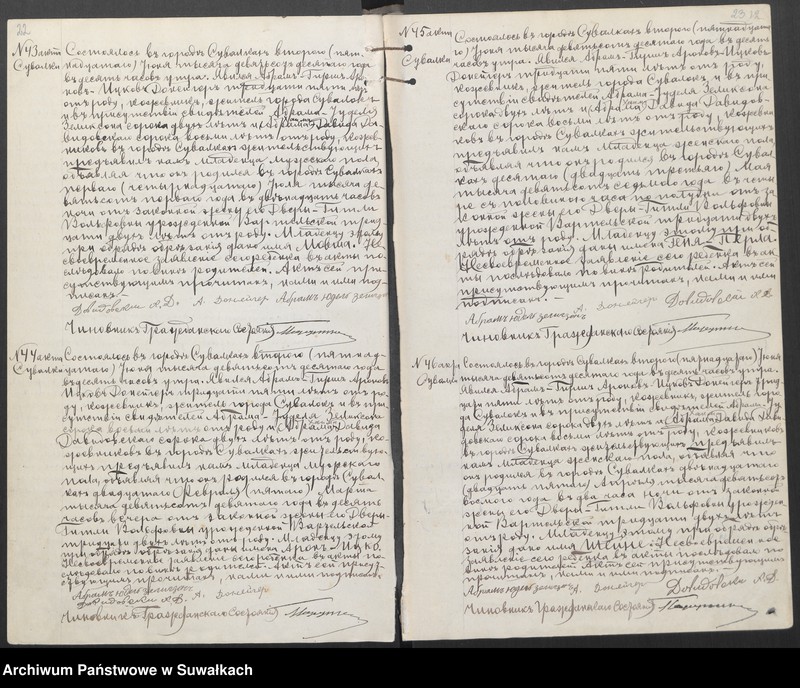 22
№ 43 акт
Сувалки
Состоялось въ городѣ Сувалкахъ второго (пят-
надцатаго) Іюня тысяча девятьсотъ десятаго года
въ десять часовъ утра. Явился Абрамъ-Гиршъ
Ицковъ Донейгоръ тридцати пяти лѣтъ
отъ роду, житель города Сувалокъ
и въ присутствіи свидѣтелей Абрама-Іуделя
Зелинсона сорока двухъ лѣтъ и Абрама Давида Да-
видовскаго сорока восьми лѣтъ отъ роду,
въ городѣ Сувалкахъ жительствующихъ
предъявилъ намъ младенца мужескаго пола,
объявляя что онъ родился въ городѣ Сувалкахъ
перваго (четырнадцатаго) Іюля тысяча де-
вятьсотъ перваго года въ двѣнадцать часовъ
ночи отъ законной жены его Двейры-Гитли
Вольфовны урожденной Вартельской трид-
цати двухъ лѣтъ отъ роду. Младенцу этому
при обрядѣ обрѣзанія дано имя
Несвоевременное заявленіе
по винѣ родителей. Актъ сей при-
сутствующимъ прочитанъ, нами и ими под-
писанъ.
Чиновникъ Гражданскаго Состоянія
№ 44 акт
Сувалки
Состоялось въ городѣ Сувалкахъ второго (пятнад-
цатаго) Іюня тысяча девятьсотъ десятаго года
въ десять часовъ утра. Явился Абрамъ-Гиршъ Ароновъ
Ицковъ Донейгоръ тридцати пяти лѣтъ отъ ро-
ду, житель города Сувалокъ и въ при-
сутствіи свидѣтелей Абрама-Іуделя Зелинсона
отъ роду и Абрама Давида
Давидовскаго сорока двухъ лѣтъ отъ роду,
въ городѣ Сувалкахъ жительствую-
щихъ предъявилъ намъ младенца мужескаго
пола, объявляя что онъ родился въ городѣ Сувал-
кахъ двадцатаго Февраля (пятаго) Марта
тысяча девятьсотъ девятаго года въ десять
часовъ вечера отъ законной жены его Двейры-
Гитли Вольфовны урожденной Вартельской
тридцати двухъ лѣтъ отъ роду. Младенцу этому
при обрядѣ обрѣзанія даны имена Аронъ Ицко.
Актъ сей присут-
ствующимъ прочитанъ, нами и ими подписанъ.
Чиновникъ Гражданскаго Состоянія
23
№ 45 акт
Сувалки
Состоялось въ городѣ Сувалкахъ второго (пятнадцата-
го) Іюня тысяча девятьсотъ десятаго года въ десять
часовъ утра. Явился Абрамъ-Гиршъ Ароновъ-Ицковъ
Донейгоръ тридцати пяти лѣтъ отъ роду,
житель города Сувалокъ, и въ при-
сутствіи свидѣтелей Абрама-Іуделя Зелинсона
сорока двухъ лѣтъ и Абрама Давида Давидов-
скаго сорока восьми лѣтъ отъ роду,
въ городѣ Сувалкахъ жительствующихъ
предъявилъ намъ младенца женскаго пола,
объявляя что онъ родился въ городѣ Сувал-
кахъ десятаго (двадцать третьяго) Мая
тысяча девятьсотъ седьмого года въ
съ половиною часа по полудни отъ за-
конной жены его Двейры-Гитли Вольфовны
урожденной Вартельской тридцати двухъ
лѣтъ отъ роду. Младенцу этому при об-
рядѣ даны имена
Несвоевременное заявленіе сего
по винѣ родителей. Актъ сей
присутствующимъ прочитанъ, нами и ими
подписанъ.
Чиновникъ Гражданскаго Состоянія
№ 46 акт
Сувалки
Состоялось въ городѣ Сувалкахъ второго (пятнадцатаго) Іюня
тысяча девятьсотъ десятаго года въ десять часовъ утра.
Явился Абрамъ-Гиршъ Ароновъ Ицковъ Донейгоръ трид-
цати пяти лѣтъ отъ роду, житель горо-
да Сувалокъ и въ присутствіи свидѣтелей Абрама-Іу-
деля Зелинсона сорока двухъ лѣтъ и Абрама Давида
сорока восьми лѣтъ отъ роду,
въ городѣ Сувалкахъ жительствующихъ предъявилъ
намъ младенца женскаго пола, объявляя что
онъ родился въ городѣ Сувалкахъ двѣнадцатаго
(двадцать пятаго) Апрѣля тысяча девятьсотъ
восьмого года въ два часа ночи отъ законной
жены его Двейры-Гитли Вольфовны урожден-
ной Вартельской тридцати двухъ лѣтъ
отъ роду. Младенцу этому при обрядѣ
дано имя Несвоевремен-
ное заявленіе
Актъ сей присутствующимъ
прочитанъ, нами и ими подписанъ.
Чиновникъ Гражданскаго Состоянія
Archiwum Państwowe w Suwałkach